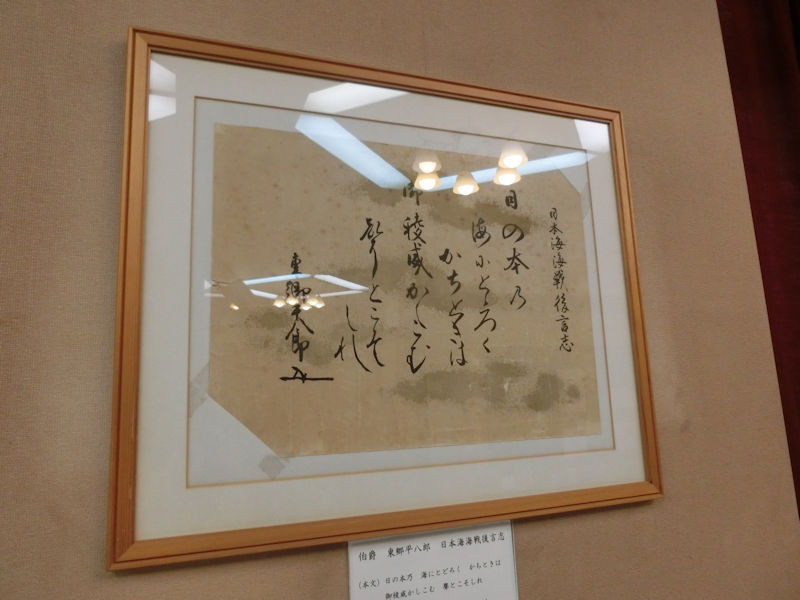 日本海海戰後言志
日の本乃
海尓とゝろく
かちときは
御稜威かしこむ
聲とこそ
しれ
東郷平八郎
伯爵　東郷平八郎　日本海海戦後言志
(本文) 日の本乃　海にとどろく　かちときは
御稜威かしこむ　聲とこそしれ